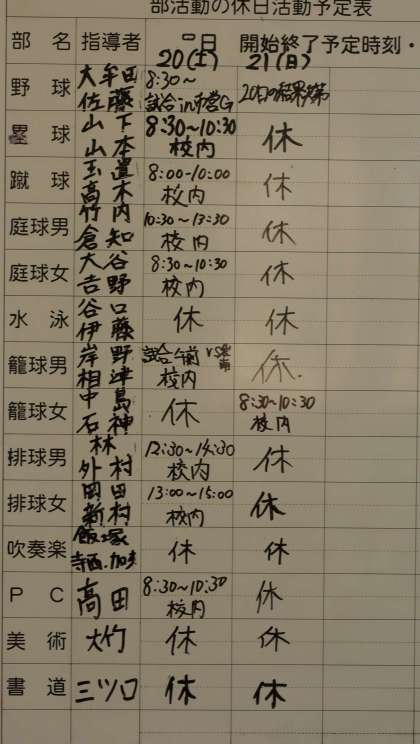 部活動の休日活動予定表
部 名 指導者 日 開始終了予定時刻・
20(土) 21(日)
野 球 大牟田 佐藤 8:30～ 試合in市営G 20日の結果次第
塁 球 山下 山本 8:30～10:30 校内 休
蹴 球 玉置 高木 8:00-10:00 校内 休
庭球男 竹内 倉知 10:30～13:30 校内 休
庭球女 大谷 吉野 8:30～10:30 校内 休
水 泳 谷口 伊藤 休 休
籠球男 岸野 相津 試合午前 VS 校内 休.
籠球女 中島 石神 休 8:30～10:30 校内
排球男 林 外村 12:30～14:30 校内 休
排球女 田 新村 13:00～15:00 校内 休
吹奏楽 飯塚 寺西. 休 休
P C 高田 8:30～10:30 校内 休
美 術 大竹 休 休
書 道 三ツ口 休 休